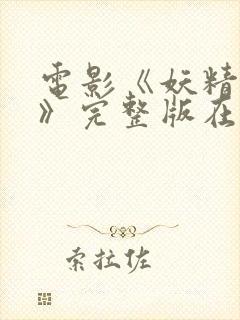 電影《妖精
》完整版在
索拉佐